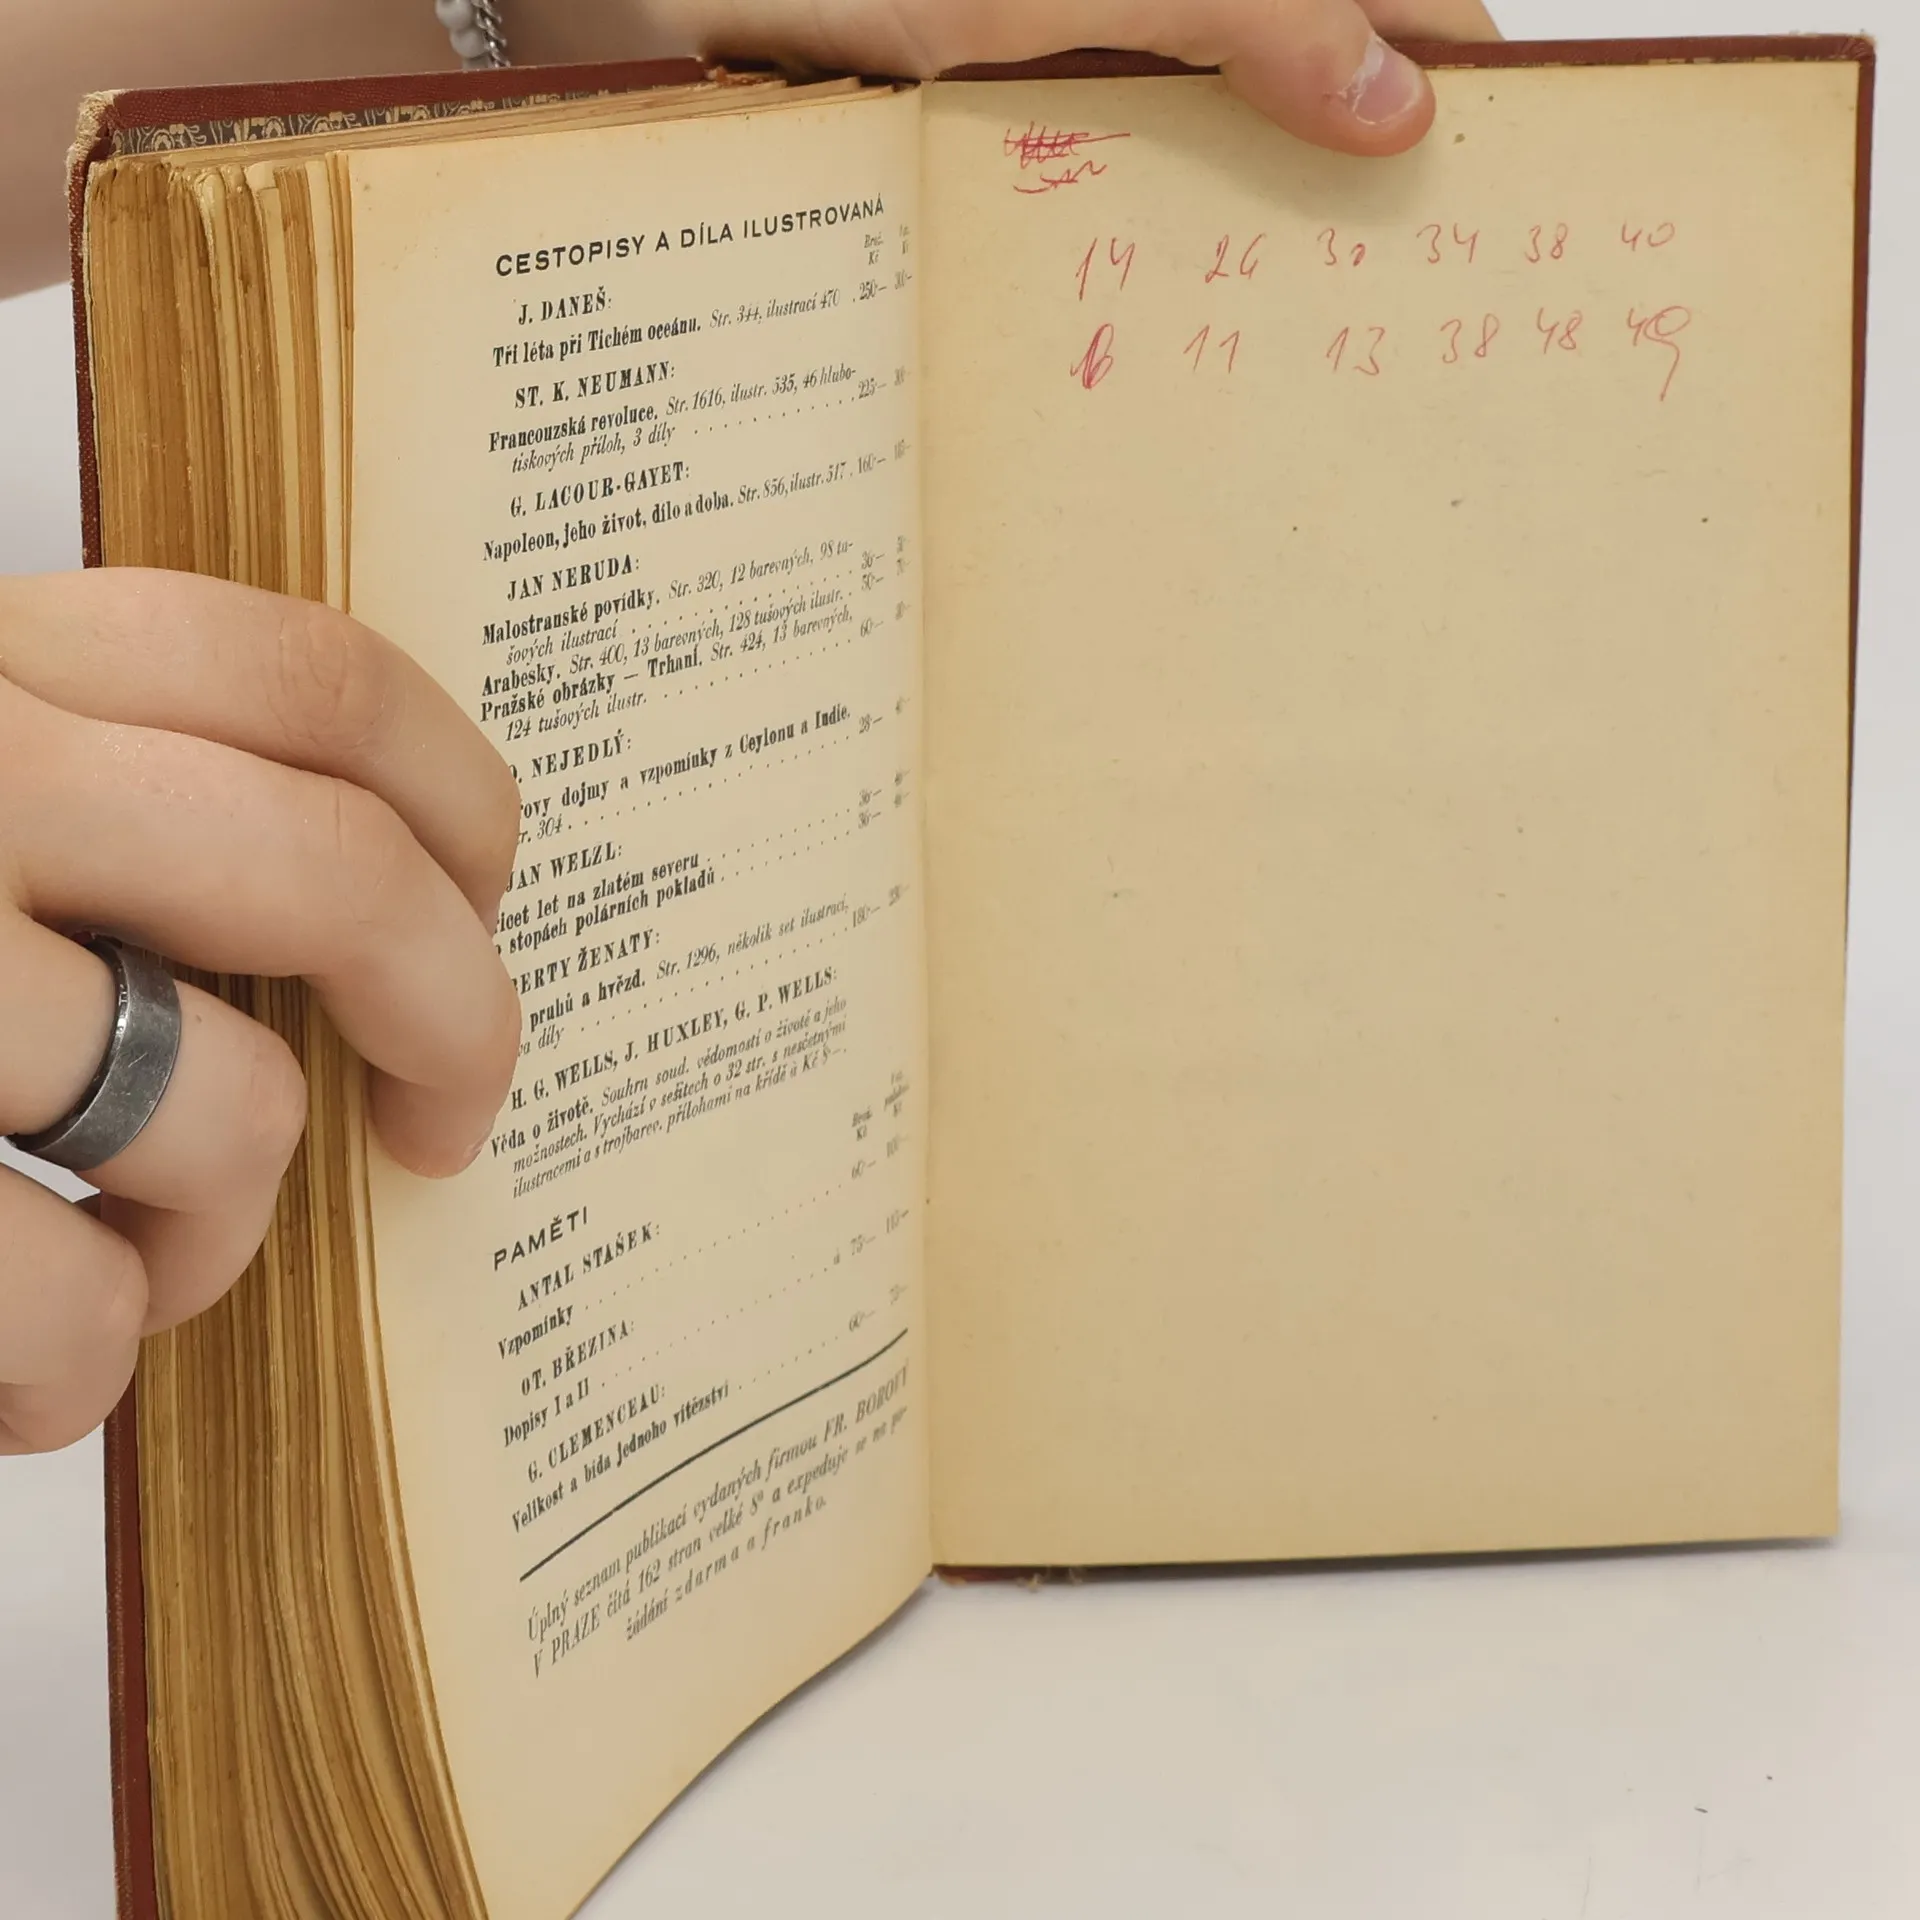 CESTOPISY A DÍLA ILUSTROVANÁ
Brož.
Kč
J. DANEŠ:
Tři léta při Tichém oceánu. Str. 344, ilustrací 470 . 250·—
ST. K. NEUMANN:
Francouzská revoluce. Str. 1616, ilustr. 535, 46 hlubo-
tiskových příloh, 3 díly . . . . . . . . . . 225·—
G. LACOUR-GAYET:
Napoleon, jeho život, dílo a doba. Str. 856, ilustr. 517 . 160·—
JAN NERUDA:
Malostranské povídky. Str. 320, 12 barevných, 98 tu-
šových ilustrací . . . . . . . . . . . . 36·—
Arabesky. Str. 400, 13 barevných, 128 tušových ilustr. . 50·—
Pražské obrázky — Trhani. Str. 424, 13 barevných,
124 tušových ilustr. . . . . . . . . . . . 60·—
NEJEDLÝ:
dojmy a vzpomínky z Ceylonu a Indie.
304 . . . . . . . . . . . . . . 28·—
JAN WELZL:
let na zlatém severu . . . . . . . . 36·—
stopách polárních pokladů . . . . . . . 36·—
ŽENATY:
pruhů a hvězd. Str. 1296, několik set ilustrací,
díly . . . . . . . . . . . . . . 180·—
H. G. WELLS, J. HUXLEY, G. P. WELLS:
Věda o životě. Souhrn soud. vědomostí o životě a jeho
možnostech. Vychází v sešitech o 32 str. s nesčetnými
ilustracemi a s trojbarev. přílohami na křídě à Kč 8·—.
Brož.
Kč
PAMĚTI
ANTAL STAŠEK:
Vzpomínky . . . . . . . . . . . . . . 60·— 100·—
OT. BŘEZINA:
Dopisy I a II . . . . . . . . . . . . à 75·— 115·—
G. CLEMENCEAU:
Velikost a bída jednoho vítězství . . . . . . 60·—
Úplný seznam publikací vydaných firmou FR. BOROVÝ
V PRAZE čítá 162 stran velké 8° a expeduje se na po-
žádání zdarma a franko.
14 26 30 34 38 40
6 11 13 38 48 49